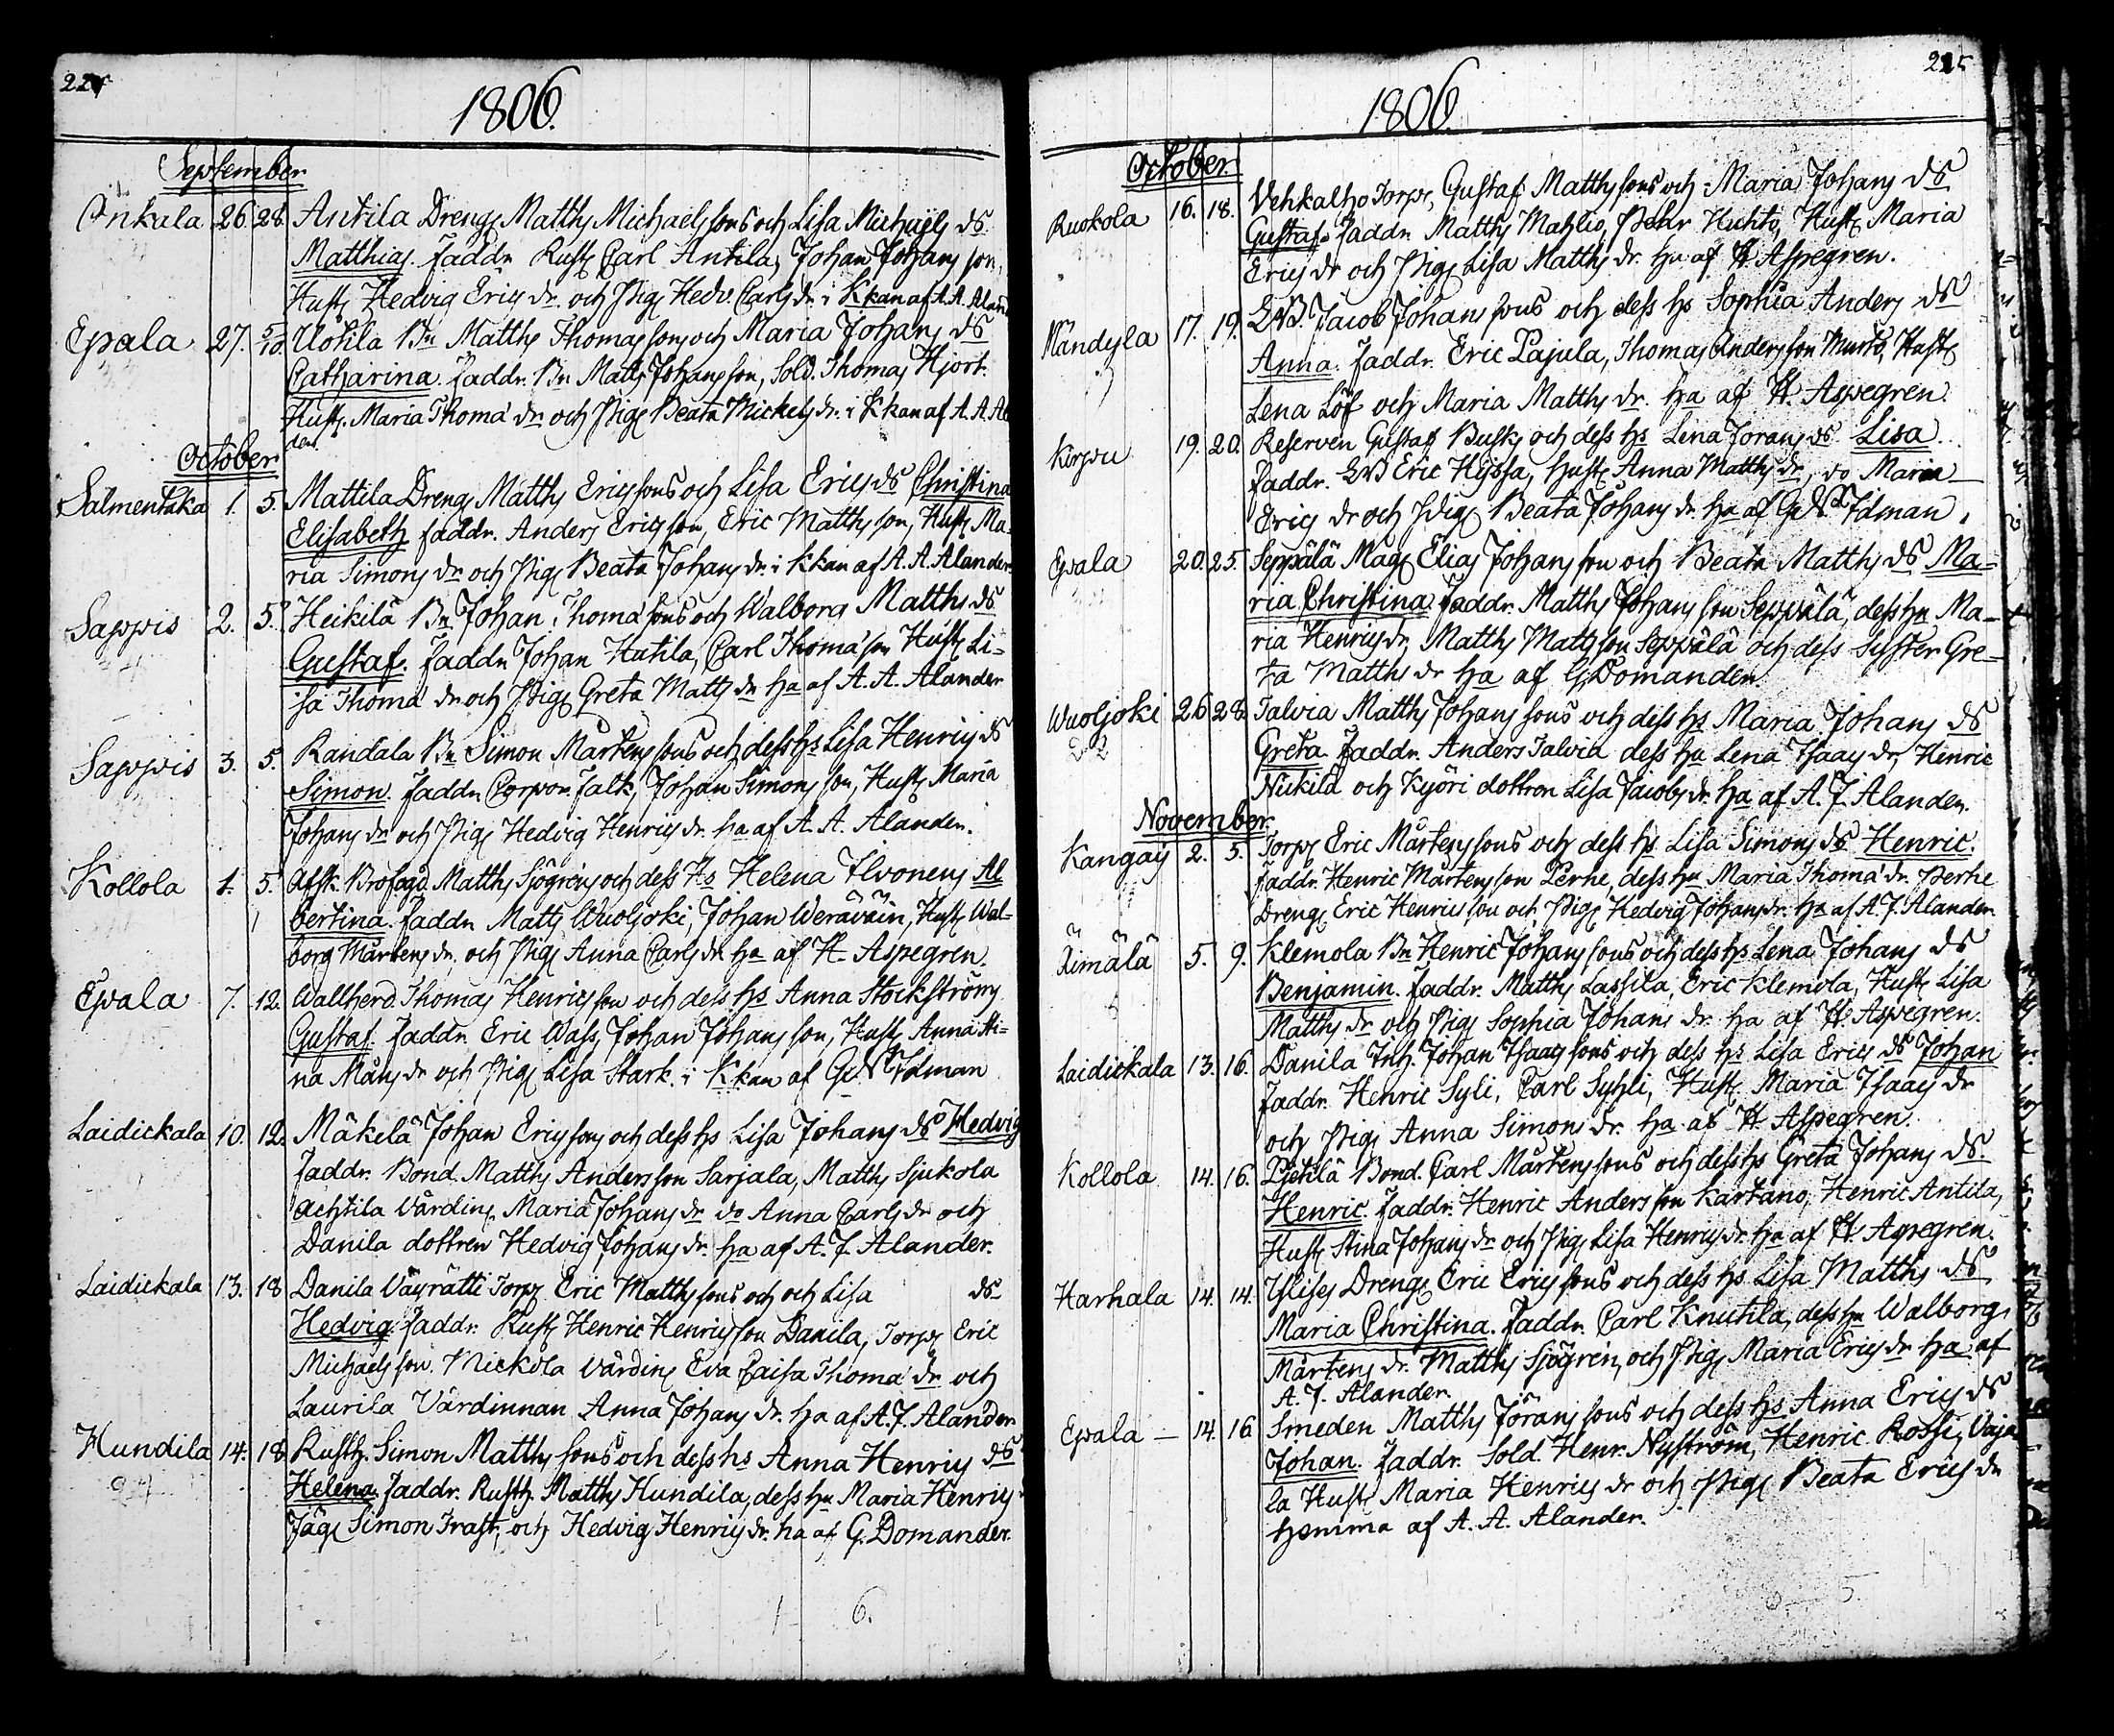 224
1806.
September
Onkala 26. 28. Antila Dreng Matths Michaels sons och Lisa Michaels ds
Matthias. Faddr. Rusth Carl Antila, Johan Johans son,
Hust. Hedvig Erics dr. och Pig. Hedv. Carls dr. i Kkan af A. A. Aland
Epala 27. 5/10. Uotila Bn Matths Thomas sons och Maria Johans ds
Catharina. Faddr. Bn. Matts Johans son, Sold. Thomas Hjort.
Hust. Maria Thomæ dr. och Pig. Beata Mickels dr. i Kkan af A. A. Al
der.
October
Salmentaka 1. 5. Mattila Dreng Matths Erics sons och Lisa Erics ds Christina
Elisabeth faddr. Anders Erics son, Eric Matths son, Hust. Ma-
ria Simons dr och Pig. Beata Johans dr. i Kkan af A. A. Alander.
Sappis 2. 5. Heikilä Bn. Johan Thomæ sons och Walborg Matths ds
Gustaf. Faddr. Johan Hutila, Carl Thomæ son Hust. Li-
sa Thomæ dr och Pig. Greta Matts dr ha af A. A. Alander
Sappis 3. 5. Randala Bn Simon Mårtens sons och dess hs Lisa Henrics ds
Simon. Faddr. Corpor. Falk, Johan Simons son, Hust. Maria
Johans dr och Pig. Hedvig Henrics dr. ha af A. A. Alander.
Kollola 4. 5. Afsk. Brofogd. Matths Sjögrens och dess Hs Helena Ilvonens Al
bertina. Faddr. Matts Wuoljoki, Johan Weräväin, Hust. Wal-
borg Mårtens dr. och Pig. Anna Carls dr ha af H. Aspegren.
Epala 7. 12. Wallherd. Thomas Henrics son och dess hs Anna Stockströms
Gustaf. Faddr. Eric Wass, Johan Johans son, Hust. Anna Sti-
na Måns dr och Pig. Lisa Stark i Kkan af Gd N Idman
Laidickala 10. 12. Mäkelä Johan Erics sons och dess hs Lisa Johans ds Hedvig
Faddr. Bond. Matths Anders son Sarjala, Matths Sjukola
Achtila Värdin. Maria Johans dr do Anna Carls dr och
Danila dottren Hedvig Johans dr. ha af A. J. Alander.
Laidickala 13. 18 Danila Väyrätti Torp. Eric Matths sons och och Lisa ds
Hedvig. Faddr. Rust. Henric Henrics son Danila, Torp. Eric
Michaels son. Nickola Värdin. Eva Caisa Thomæ dr och
Laurila Värdinnan Anna Johans dr. ha af A. J. Alander
Hundila 14. 18. Rusth. Simon Matths sons och dess hs Anna Henrics ds
Helena. Faddr. Rusth. Matths Hundila, dess hu Maria Henrics
Jäg. Simon Trast, och Hedvig Henrics dr. ha af G. Domander.
6.
225
1806.
October.
Ruokola 16. 18. Vehkalho Torp. Gustaf Matths sons och Maria Johans ds
Gustaf. Faddr. Matths Mahlio, Pehr Huhto, Hust. Maria
Erics dr och Pig. Lisa Matths dr. ha af H. Aspegren.
Mändylä 17. 19. LB. Jacob Johans sons och dess hs Sophia Anders ds
Anna. Faddr. Eric Pajula, Thomas Anders son Murto, Hust.
Lena Löf och Maria Matths dr. ha af H. Aspegren.
Korpu 19. 20. Reserven Gustaf Busks och dess hs Lena Jorans ds Lisa.
Faddr. LB Eric Hyssa, Hust. Anna Matths dr, do Maria
Erics dr och Pig. Beata Johans dr. ha af Gd N Idman.
Epala 20. 25. Seppälä Mag. Elias Johans son och Beata Matths ds Ma-
ria Christina Faddr. Matths Johans son Seppälä, dess hu Ma-
ria Henrics dr, Matths Matts son Seppälä och dess syster Gre-
ta Matths dr ha af G. Domander.
Wuoljoki 26 28. Talvia Matths Johans sons och dess hs Maria Johans ds
Greta. Faddr. Anders Talvia dess hu Lena Isaacs dr, Henric
Nickilä och Kyöri dottren Lisa Jacobs dr. ha af A. J. Alander.
November.
Kangais 2. 5. Torp. Eric Mårtens sons och dess hs. Lisa Simons ds Henric.
Faddr. Henric Mårtens son Perhe, dess hu Maria Thomæ dr. Perhe
Dreng. Eric Henrics son och Pig. Hedvig Johans dr. ha af A. J. Alander
Rimälä 5. 9. Klemola Bn Henric Johans sons och dess hs Lena Johans ds
Benjamin. Faddr. Matths Lassila, Eric Klemola, Hust. Lisa
Matths dr och Pig. Sophia Johans dr. ha af H. Aspegren.
Laidickala 13. 16. Danila Inh. Johan Isaacs sons och dess hs Lisa Erics ds Johan
Faddr. Henric Syli, Carl Syhli, Hust. Maria Isaacs dr
och Pig. Anna Simons dr. ha af H. Aspegren.
Kollola 14. 16. Pietilä Bond. Carl Mårtens sons och dess hs Greta Johans ds.
Henric. Faddr. Henric Anders son Kartano, Henric Antila,
Hust. Stina Johans dr och Pig. Lisa Henrics dr. ha af H. Aspegren.
Harhala 14. 14. Ylises Dreng. Eric Erics sons och dess hs Lisa Matths ds
Maria Christina. Faddr. Carl Knutila, dess hu Walborg
Mårtens dr. Matths Sjögren, och Pig. Maria Erics dr. ha af
A. J. Alander.
Epala — 14. 16 Smeden Matths Jörans sons och dess hs Anna Erics ds
Johan. Faddr. Sold. Henr. Nyström, Henric Rossi, Vaja
la Hust. Maria Henrics dr och Pig. Beata Erics dr
hemma af A. A. Alander.
5